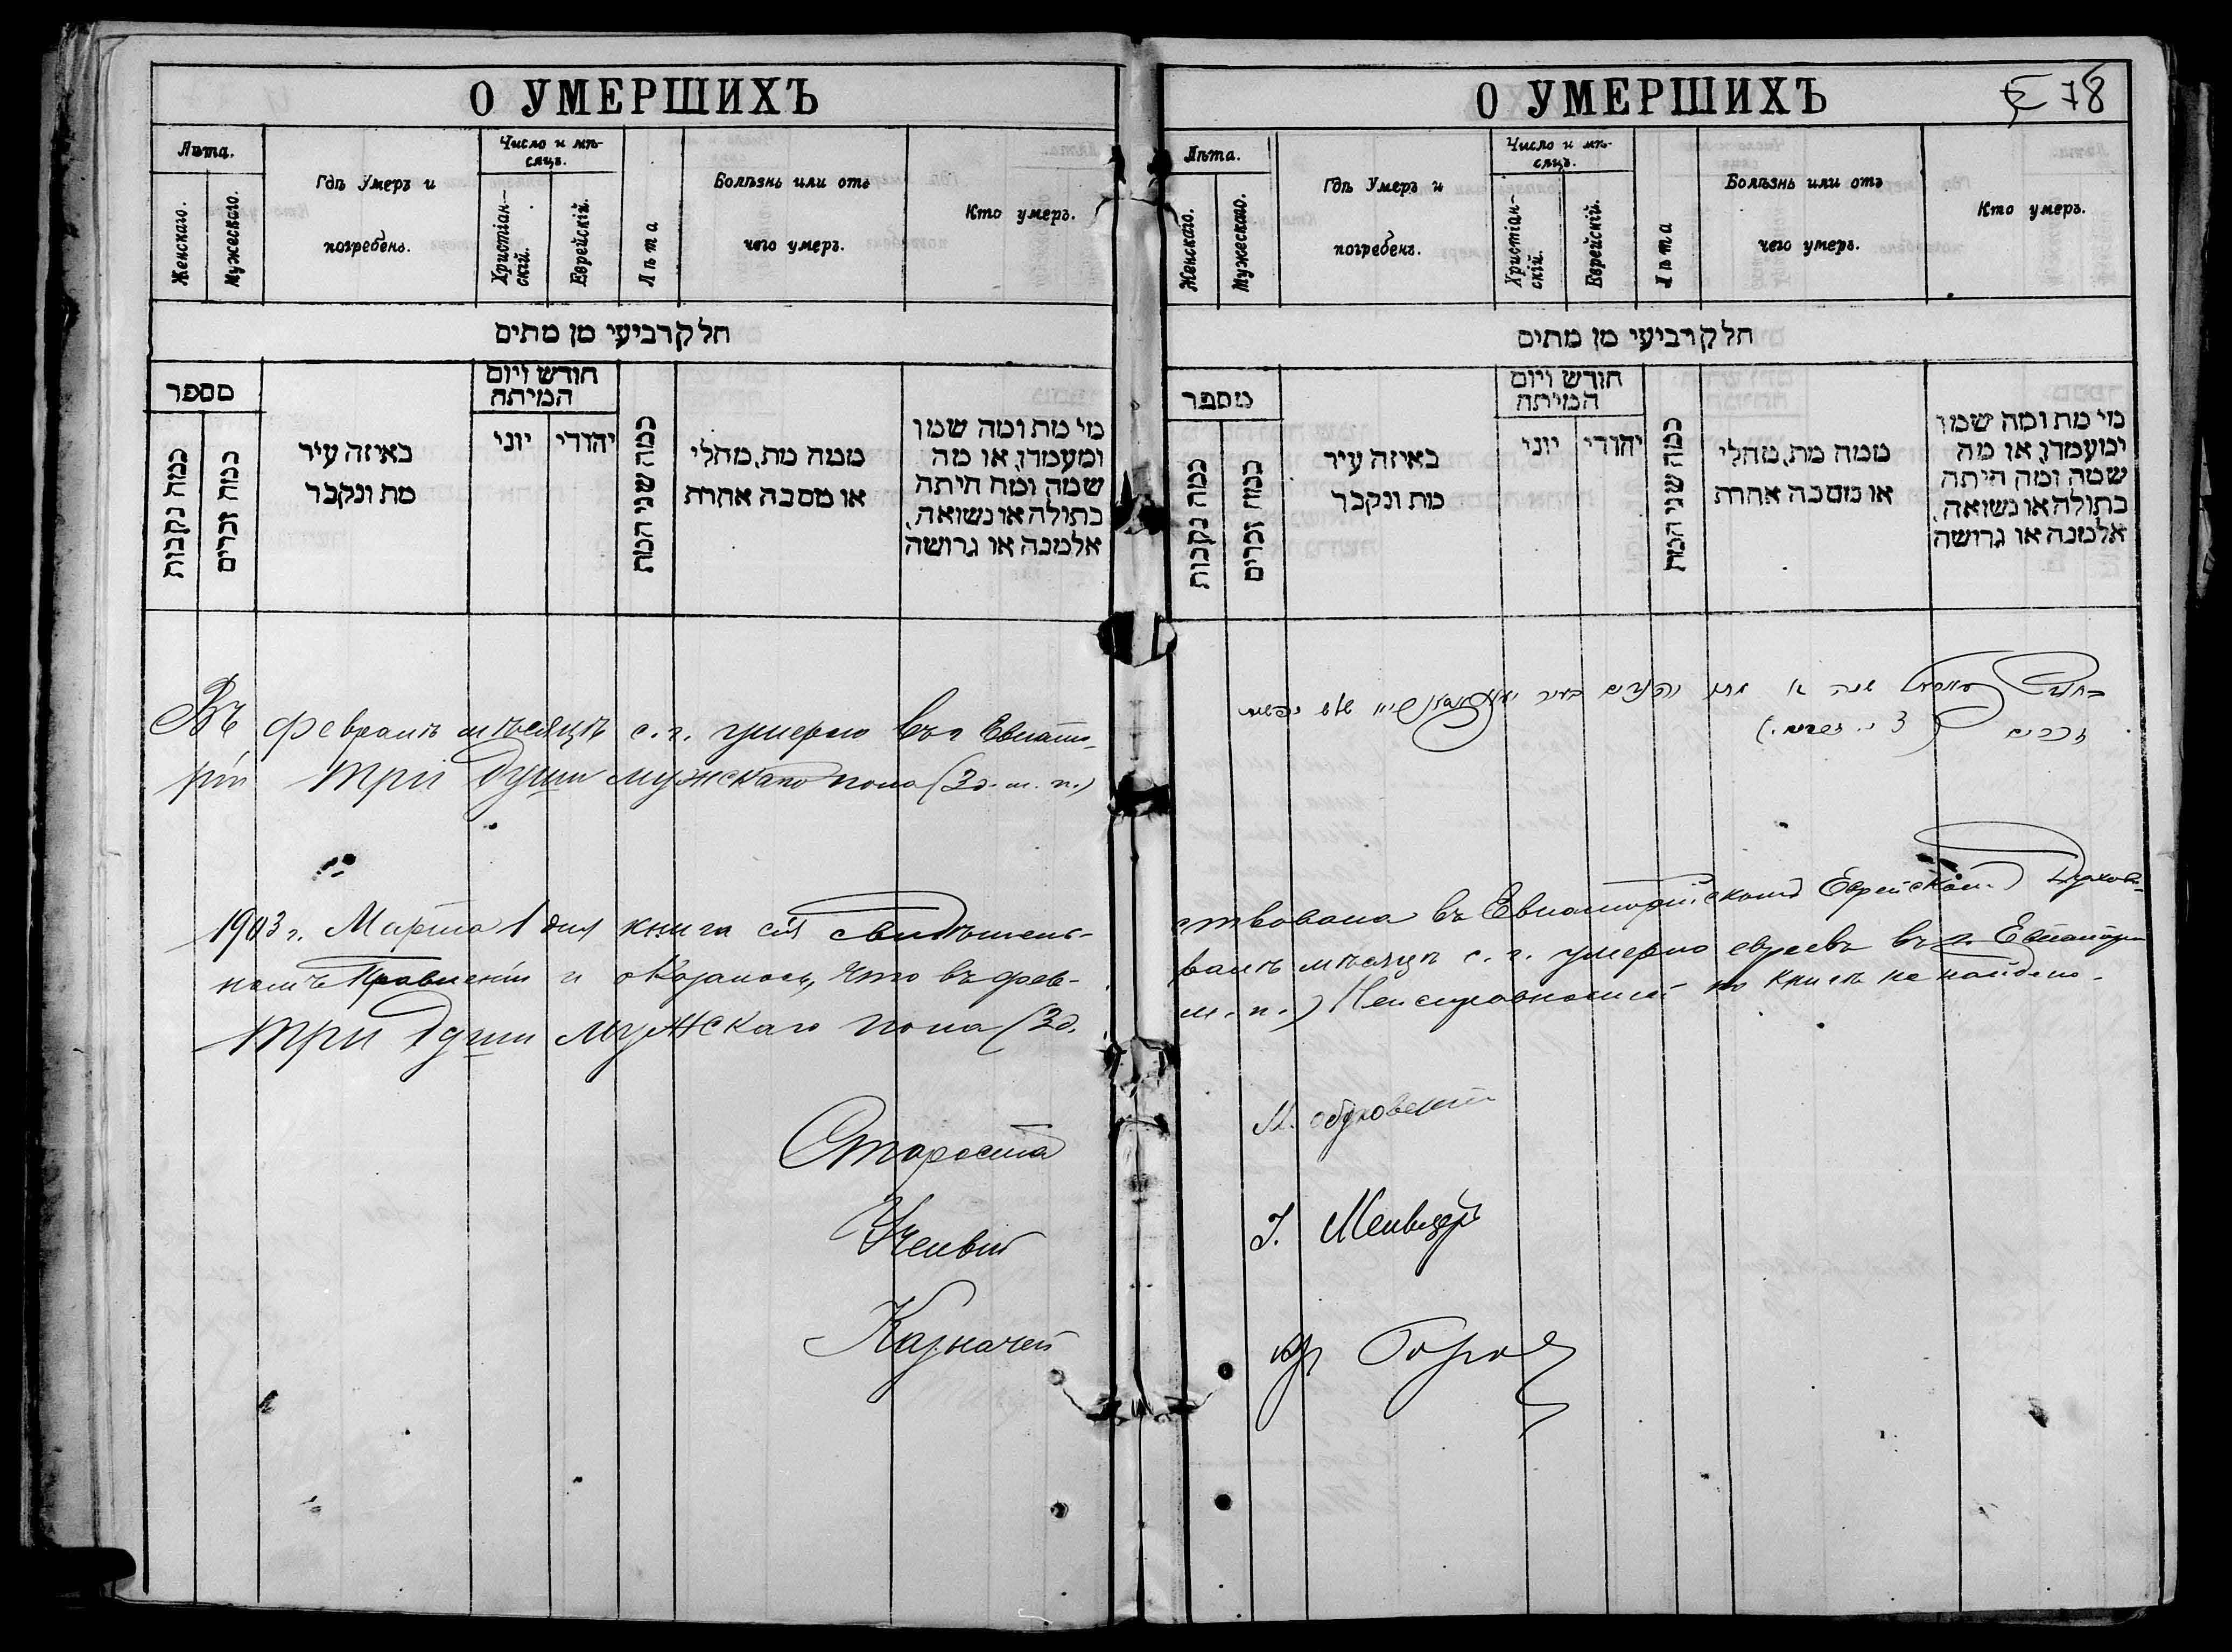 О УМЕРШИХЪ
Лѣта.
Женскаго.
Мужескаго.
Гдѣ Умеръ и
погребенъ.
Число и мѣ-
сяцъ.
Христіан-
скій.
Еврейскій.
Лѣта
Болѣзнь или отъ
чего умеръ.
Кто умеръ.
חלק רביעי מן מתים
מספר
כמה נקבות
כמה זכרים
באיזה עיר
מת ונקבר
חודש ויום
המיתה
יוני
יהודי
כמה שני המת
ממה מת, מחלי
או מסבה אחרת
מי מת ומה שמו
ומעמדו, או מה
שמה ומה היתה
בתולה או נשואה,
אלמנה או גרושה
Въ февралѣ мѣсяцѣ с. г. умерло въ г Евпато-
ріи три души мужскаго пола (3 д. м. п.)
1903 г. Марта 1 дня книга сія свидѣтель-
номъ Правленіи и оказалось, что въ фев-
три души мужскаго пола (3 д.
Староста
Ученый
Казначей
О УМЕРШИХЪ
78
Лѣта.
Женскаго.
Мужескаго.
Гдѣ Умеръ и
погребенъ.
Число и мѣ-
сяцъ.
Христіан-
скій.
Еврейскій.
Лѣта
Болѣзнь или отъ
чего умеръ.
Кто умеръ.
חלק רביעי מן מתים
מספר
כמה נקבות
כמה זכרים
באיזה עיר
מת ונקבר
חודש ויום
המיתה
יוני
יהודי
כמה שני המת
ממה מת, מחלי
או מסבה אחרת
מי מת ומה שמו
ומעמדו, או מה
שמה ומה היתה
בתולה או נשואה,
אלמנה או גרושה
זכרים (3
ствована въ Евпаторійскомъ Еврейском Духов-
ралѣ мѣсяцѣ с. г. умерло евреевъ въ г. Евпаторіи
м. п.) Неисправностей по книгѣ не найдено.
М.
І.